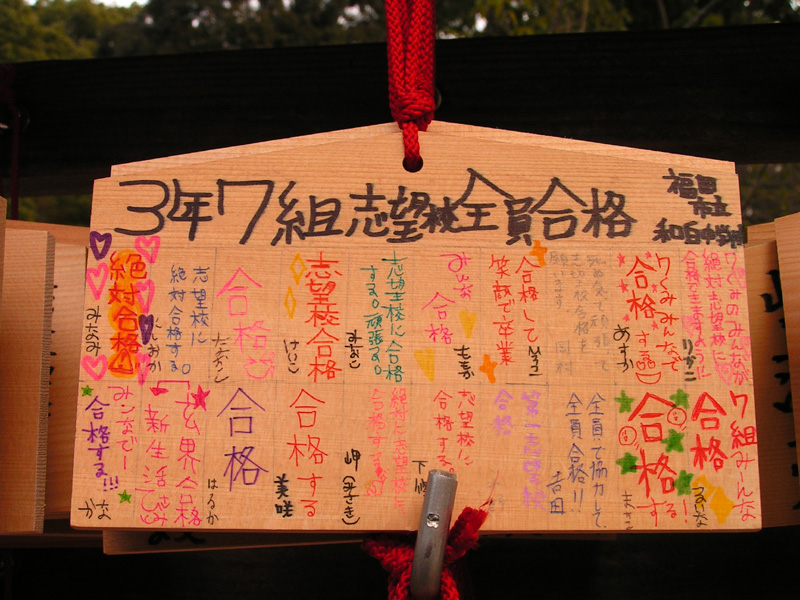 3年7組志望校全員合格
福田
和白中学校
7くみのみんなが
絶対志望校に
合格できますように
りかこ
7くみみんなで
合格
する
あすか
志望校合格
合格して
笑顔で卒業
みんな
合格
志望校に合格
する。頑張る。
みなこ
志望校合格
けいこ
合格
志望校に
絶対合格する。
絶対合格
みなみ
7組みーんな
合格
する!
合格
する
全員で協力して、
全員合格!!
吉田
第一志望校
合格
志望校に
合格する。
絶対に志望校に
合格する
岬(みさき)
合格する
美咲
合格
はるか
合格
新生活
みんなでー
合格する!!!